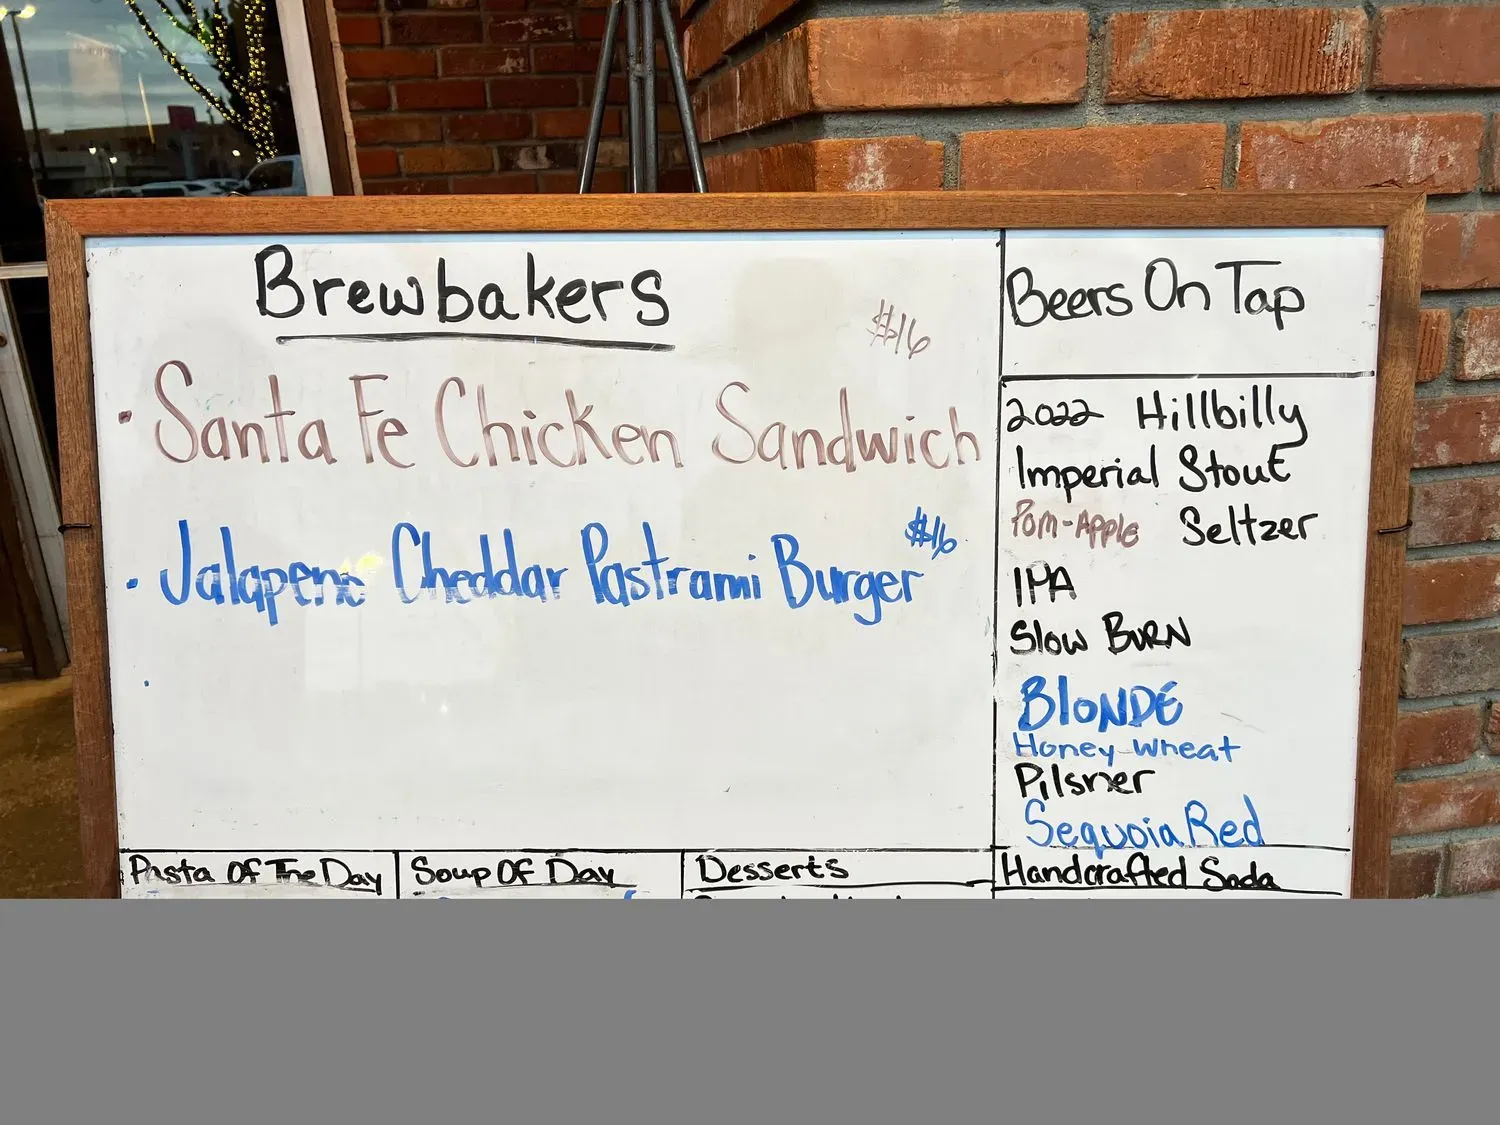 Brewbakers
$16
· Santa Fe Chicken Sandwich
$16
· Jalapeno Cheddar Pastrami Burger
·
Beers On Tap
2022 Hillbilly
Imperial Stout
Pom-Apple Seltzer
IPA
Slow BURN
BlONDE
Honey Wheat
Pilsner
Sequoia Red
Pasta Of The Day
Soup Of Day
Desserts
Handcrafted Soda